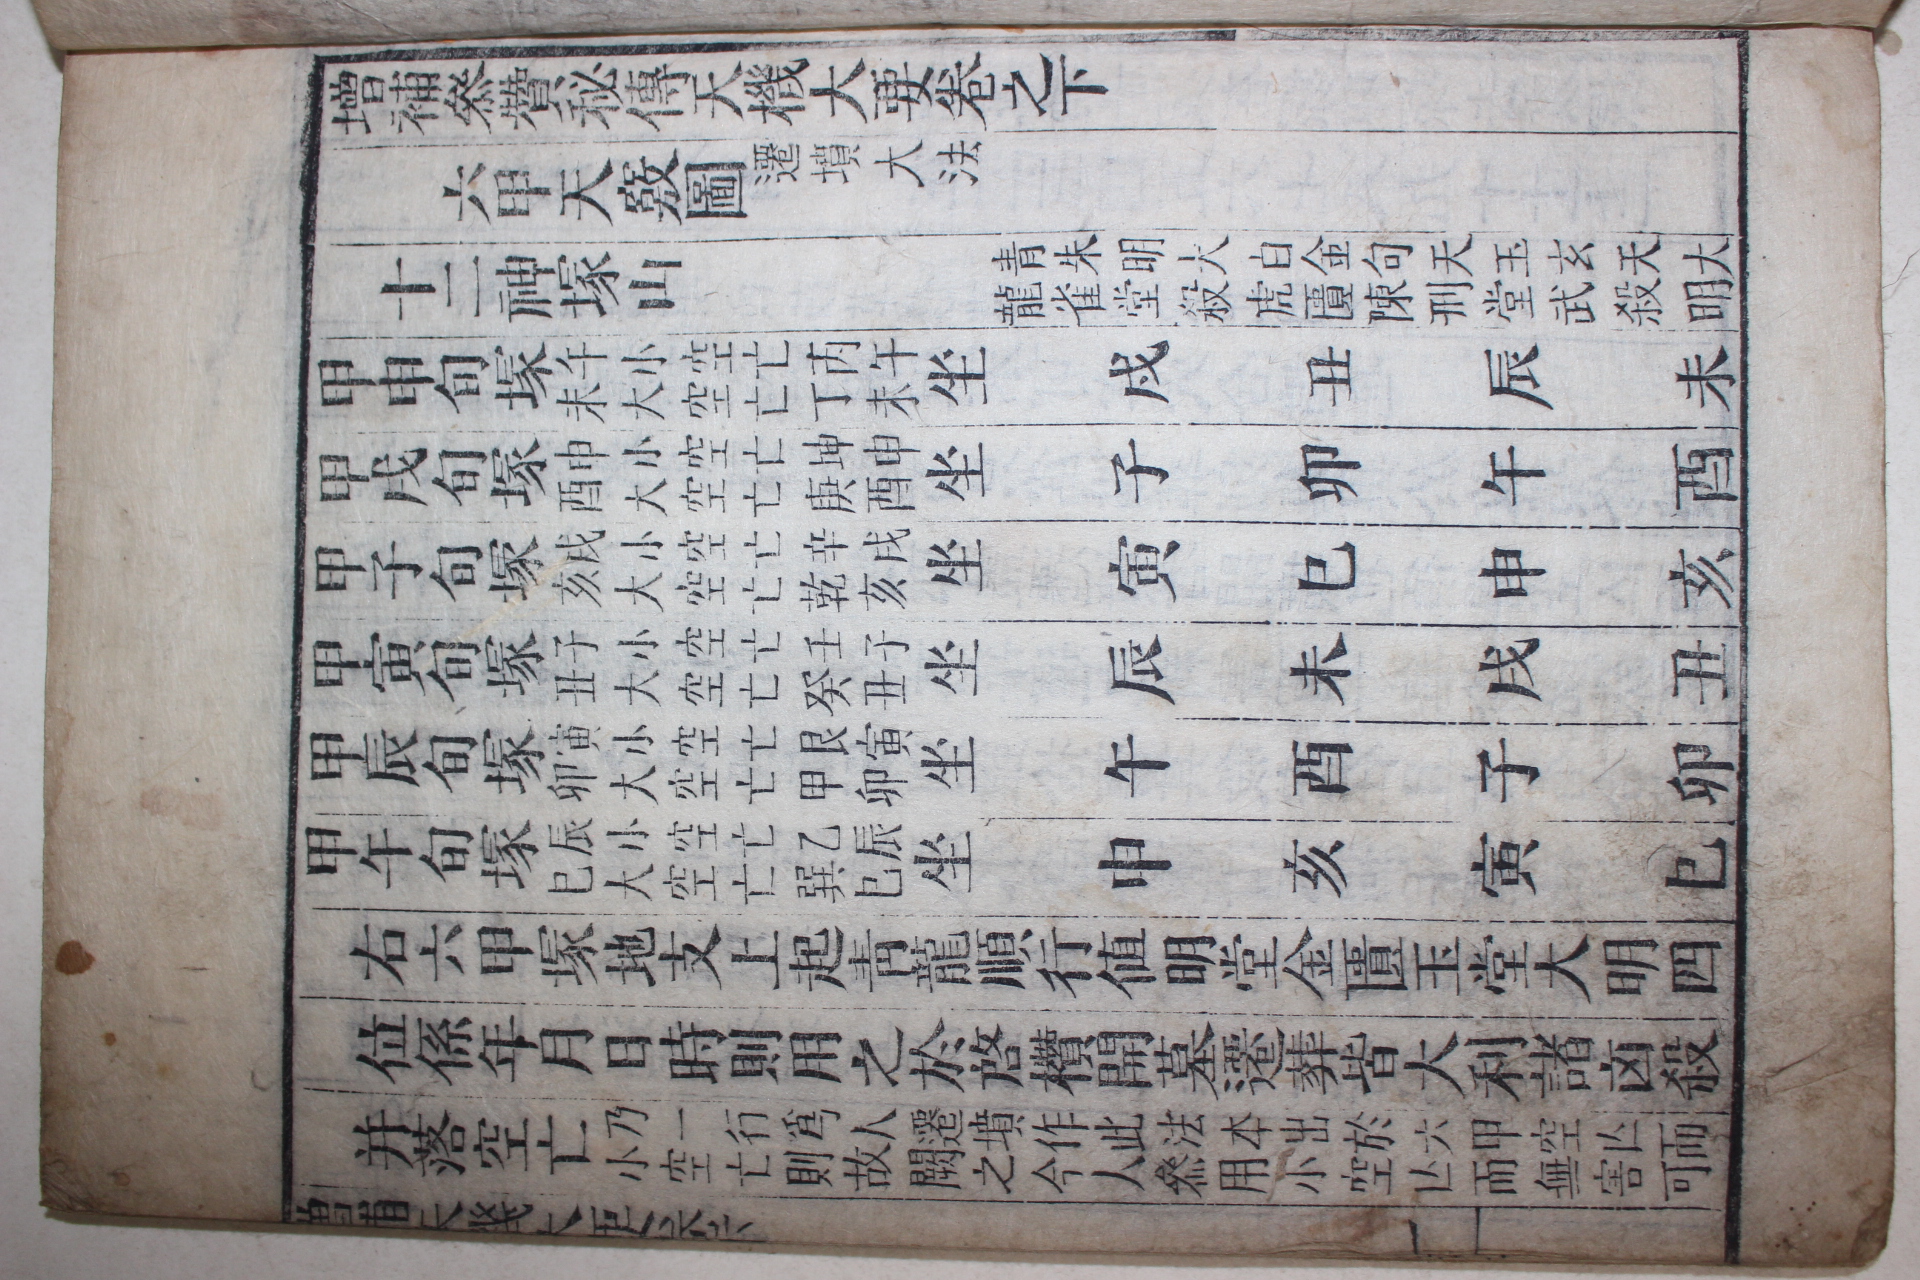 增補叅贊秘傳天機大要卷之下
六甲天竅圖 遷墳大法
十二神塚山 青龍 朱雀 明堂 大殺 白虎 金匱 句陳 天刑 玉堂 玄武 天殺 大明
甲申旬塚 午小空亡丙午 未大空亡丁未 坐 戌 丑 辰 未
甲戌旬塚 申小空亡坤申 酉大空亡庚酉 坐 子 卯 午 酉
甲子旬塚 戌小空亡辛戌 亥大空亡乾亥 坐 寅 巳 申 亥
甲寅旬塚 子小空亡壬子 丑大空亡癸丑 坐 辰 未 戌 丑
甲辰旬塚 寅小空亡艮寅 卯大空亡甲卯 坐 午 酉 子 卯
甲午旬塚 辰小空亡乙辰 巳大空亡巽巳 坐 申 亥 寅 巳
右六甲塚地支上起靑龍順行値明堂金匱玉堂大明四
位係年月日時則用之於啓欑開墓遷葬皆大利諸凶殺
并落空亡 乃一行爲人遷墳作此法本出於六甲空亾而
小空亡則故闕之今人叅用小空亾而無害可
天機大要卷下 一